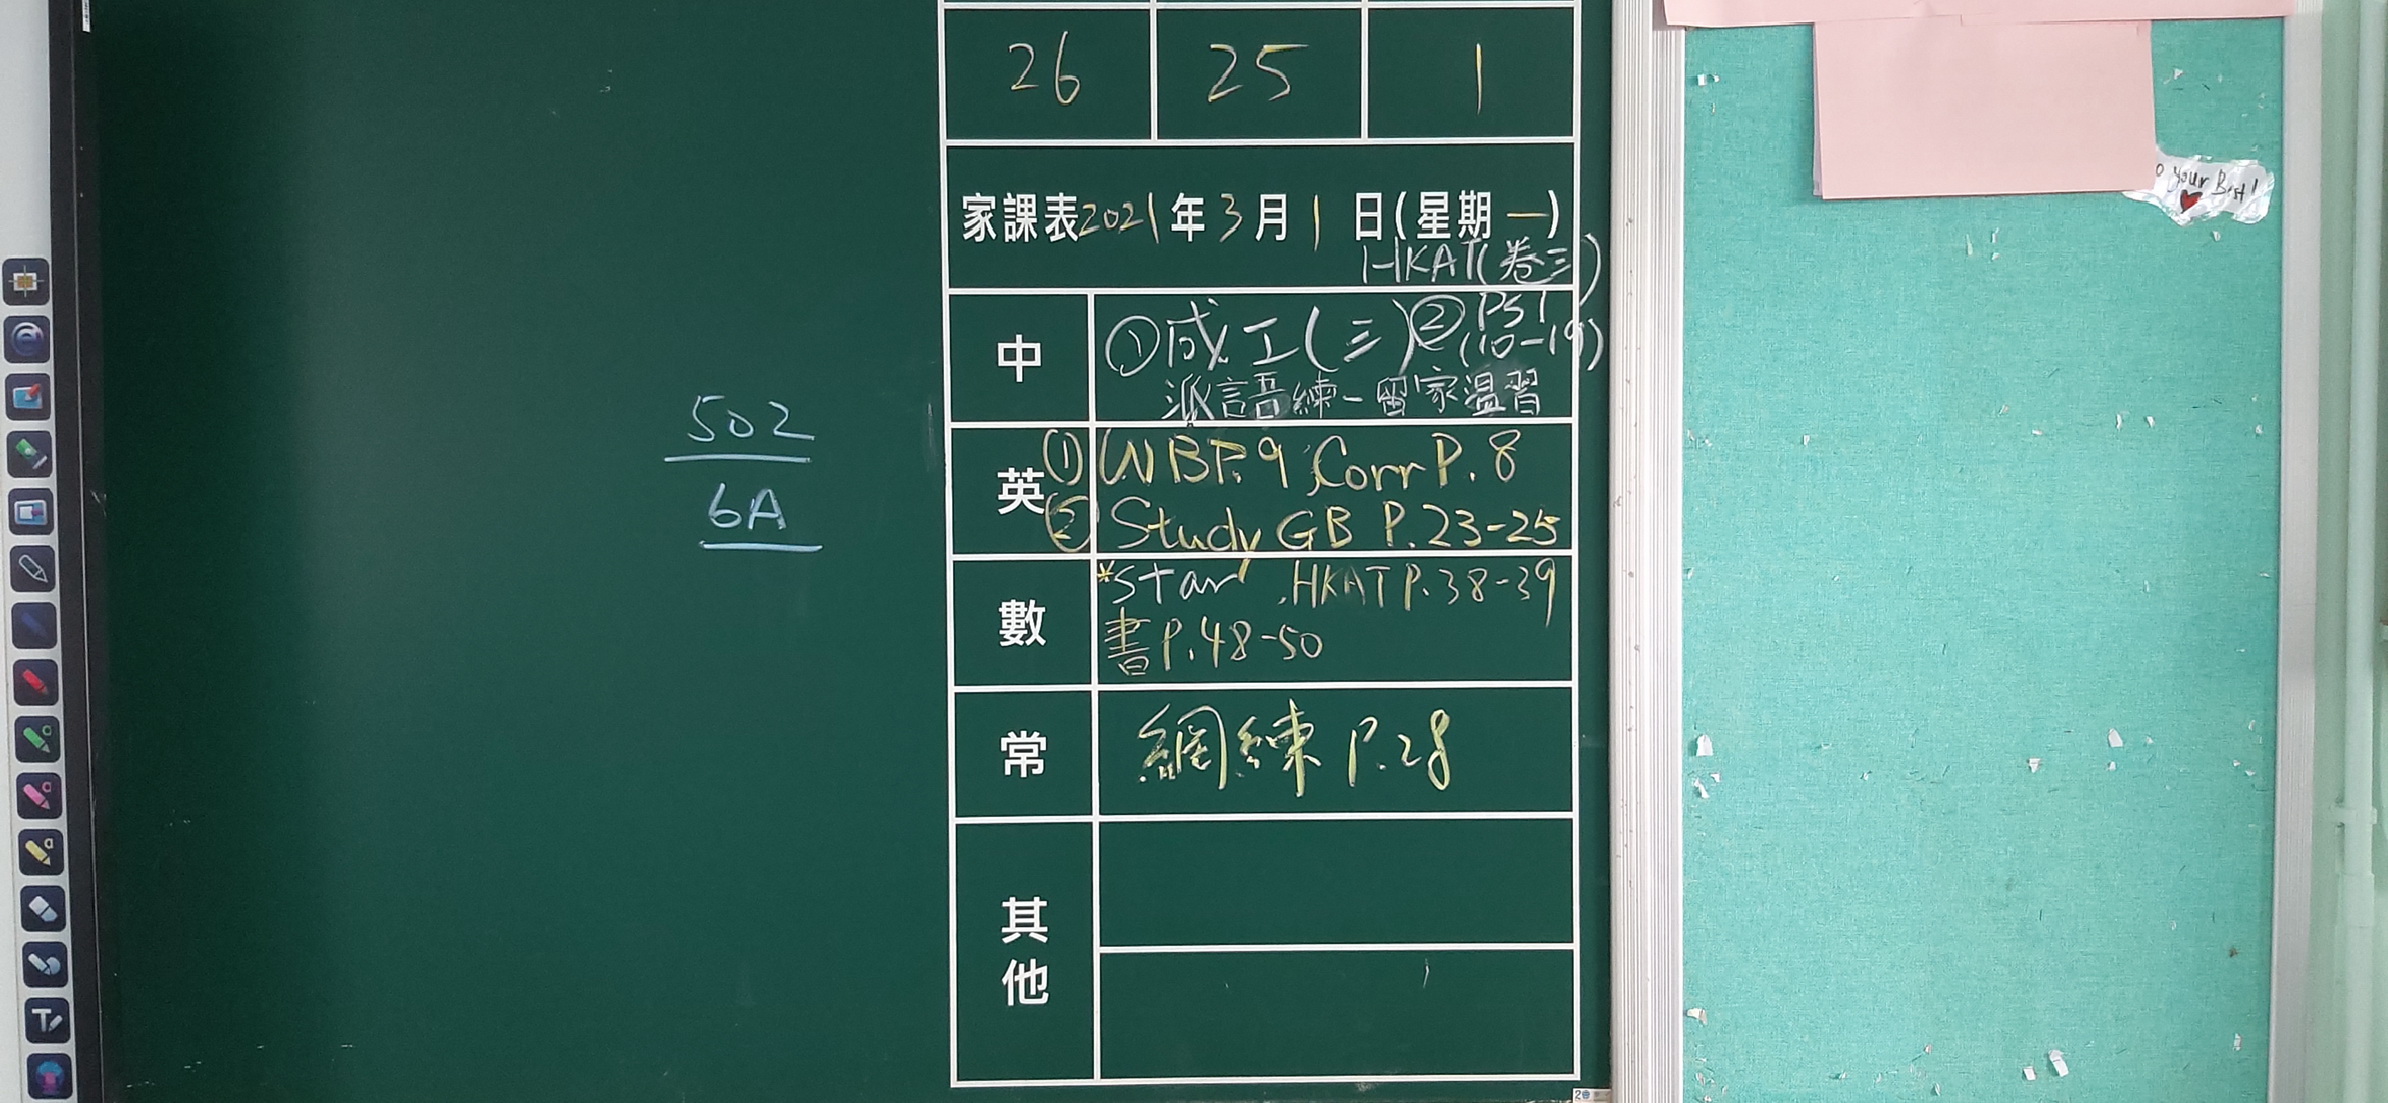 26 25 1
家課表2021年3月1日(星期一)
HKAT(卷三)
中 ①成工(三)②P51
(10-19)
派言吾練-留家溫習
英 ①WB P.9, Corr P.8
② Study GB P.23-25
數 *Star HKAT P.38-39
書P.48-50
常 網練 P.28
其他
502
6A
your Best!